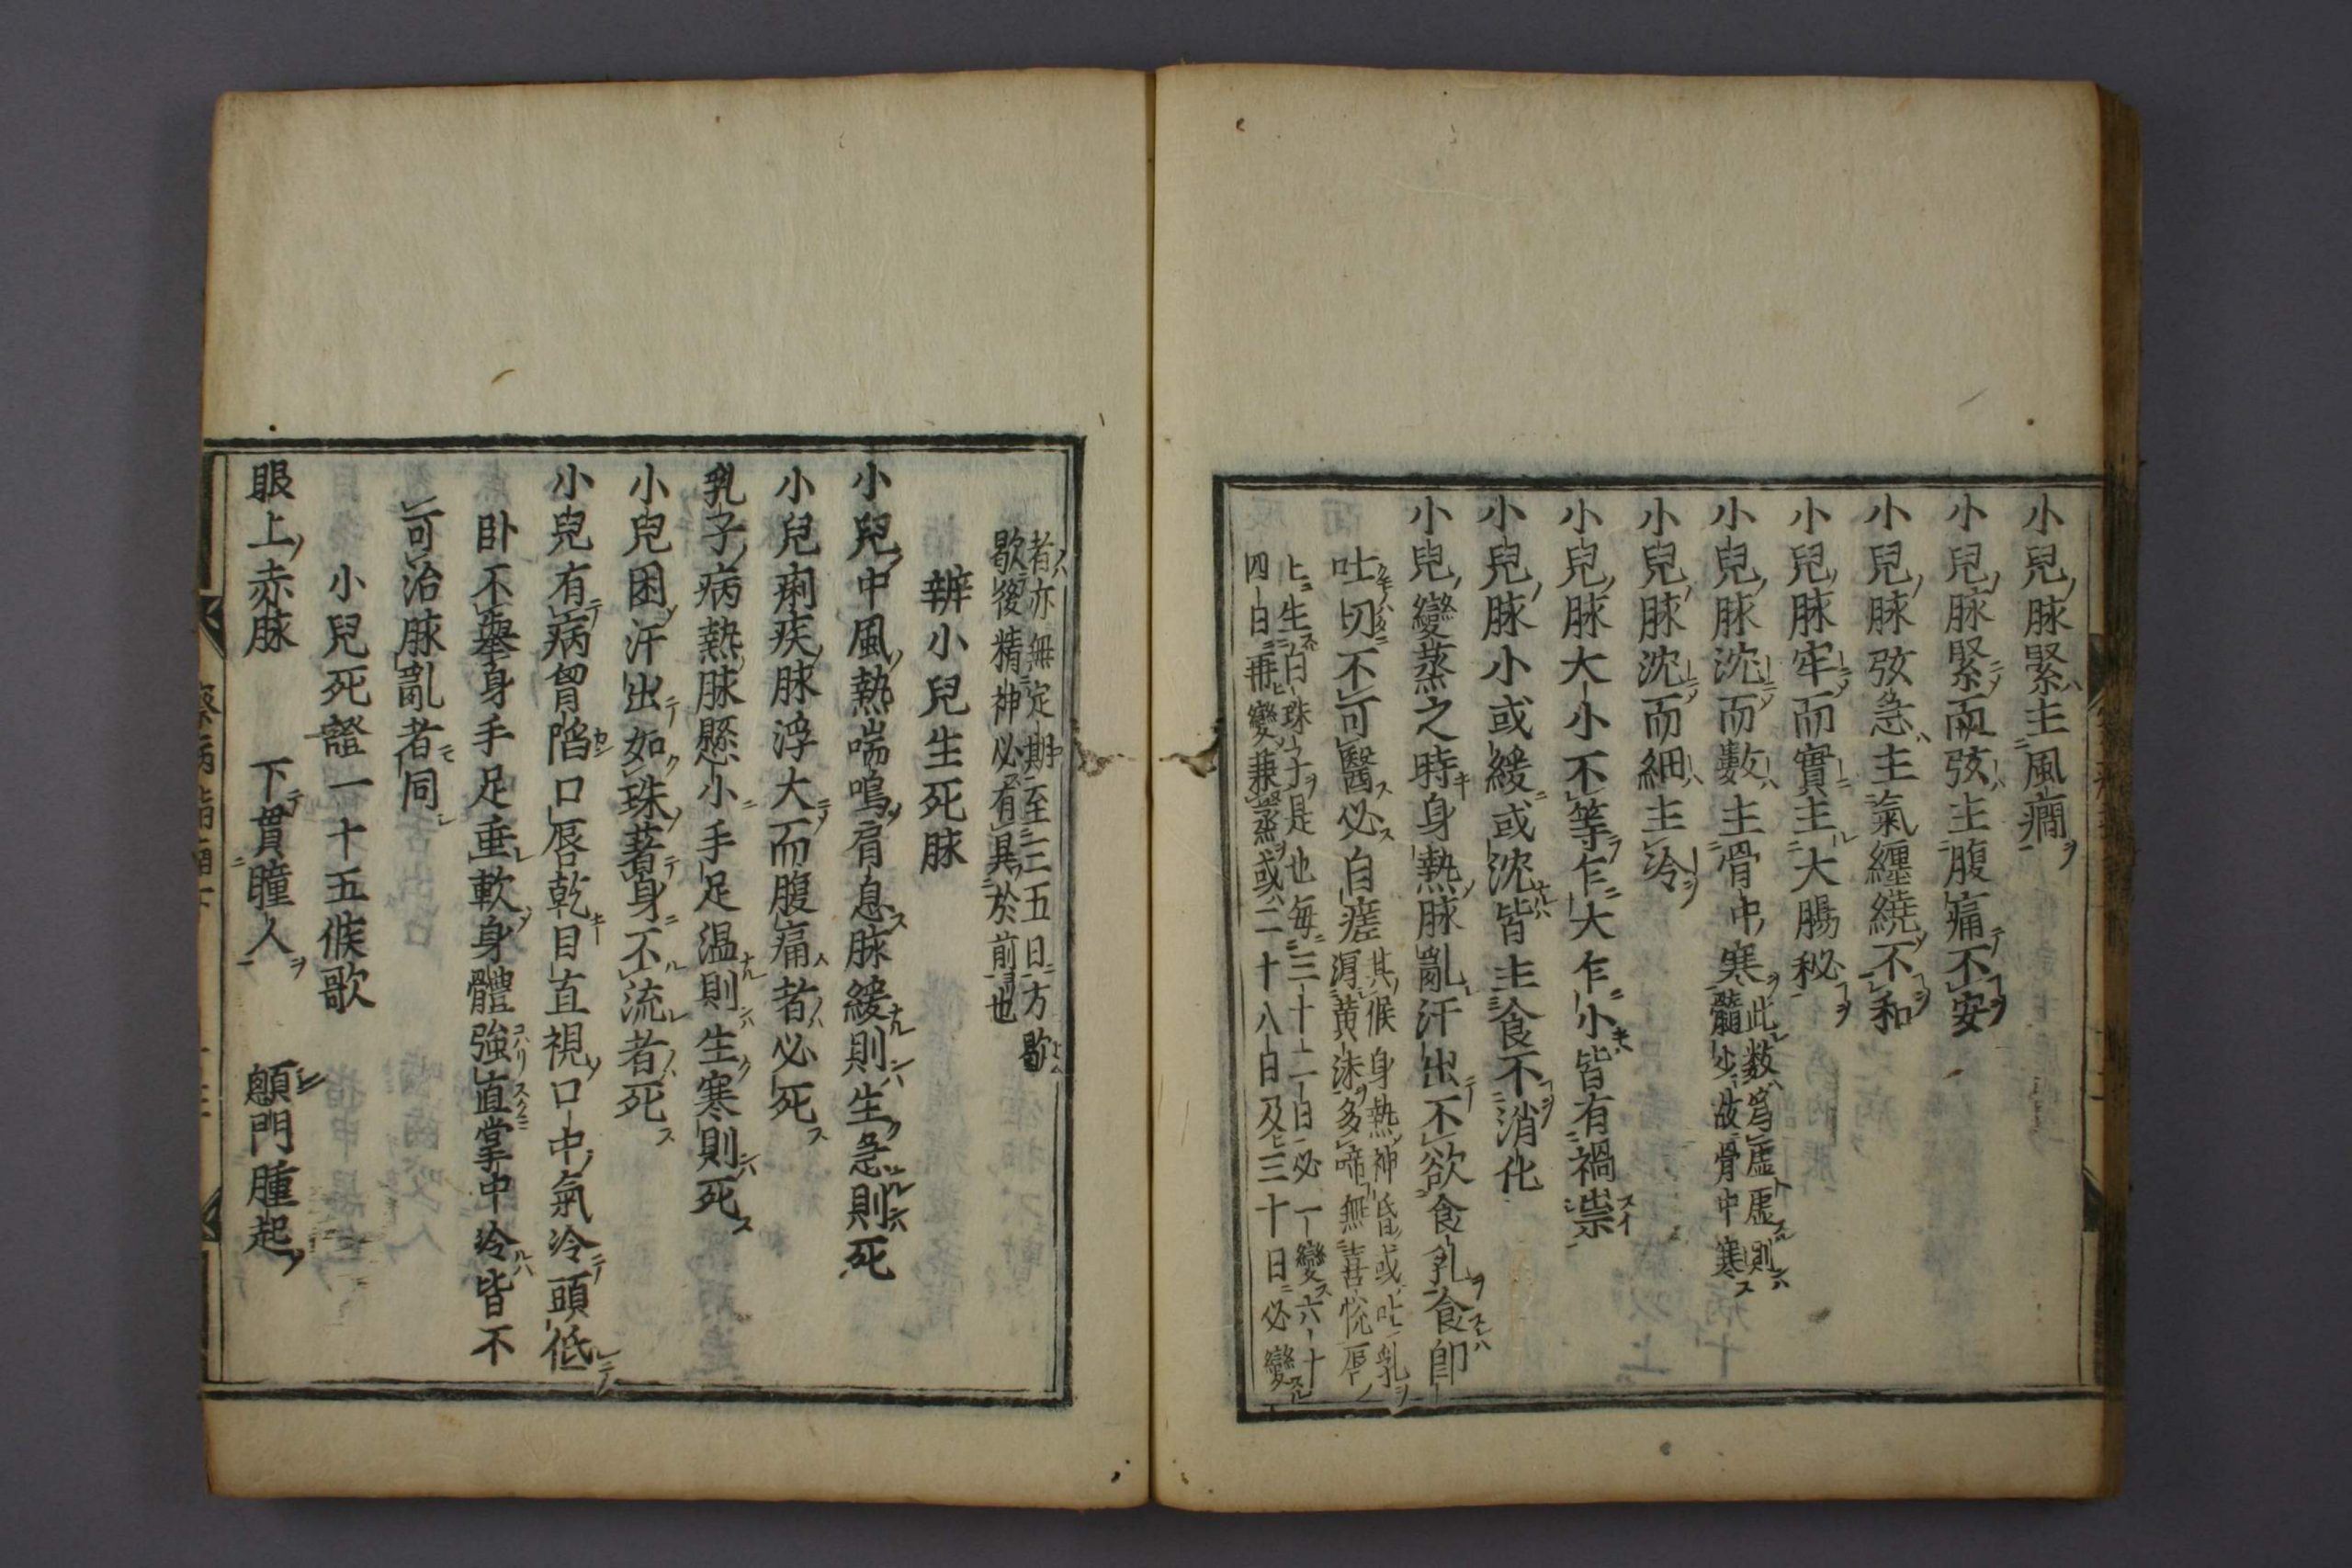 小兒脉緊主風癇
小兒脉緊而弦主腹痛不安
小兒脉弦急主氣纏繞不和
小兒脉牢而實主大腸秘
小兒脉沈而數主骨中寒
此数為虛虛則
髓少故骨中寒
小兒脉沈而細主冷
小兒脉大小不等乍大乍小皆有禍祟
小兒脉小或緩或沈皆主食不消化
小兒變蒸之時身熱脉亂汗出不欲食乳食即
吐切不可醫必自瘥
其候身熱神昏或吐乳
瀉黃沫多啼無喜悅唇
上生白珠子是也每三十二日必一變六十
四日再變兼蒸或二十八日及三十日必變
者亦無定期至三五日方歇
歇後精神必有異於前也
辨小兒生死脉
小兒中風熱喘鳴肩息脉緩則生急則死
小兒痢疾脉浮大而腹痛者必死
乳子病熱脉懸小手足温則生寒則死
小兒困汗出如珠著身不流者死
小兒有病胷陷口唇乾目直視口中氣冷頭低
卧不舉身手足垂軟身體強直掌中冷皆不
可治脉亂者同
小兒死證一十五候歌
眼上赤脉 下貫瞳人 顖門腫起